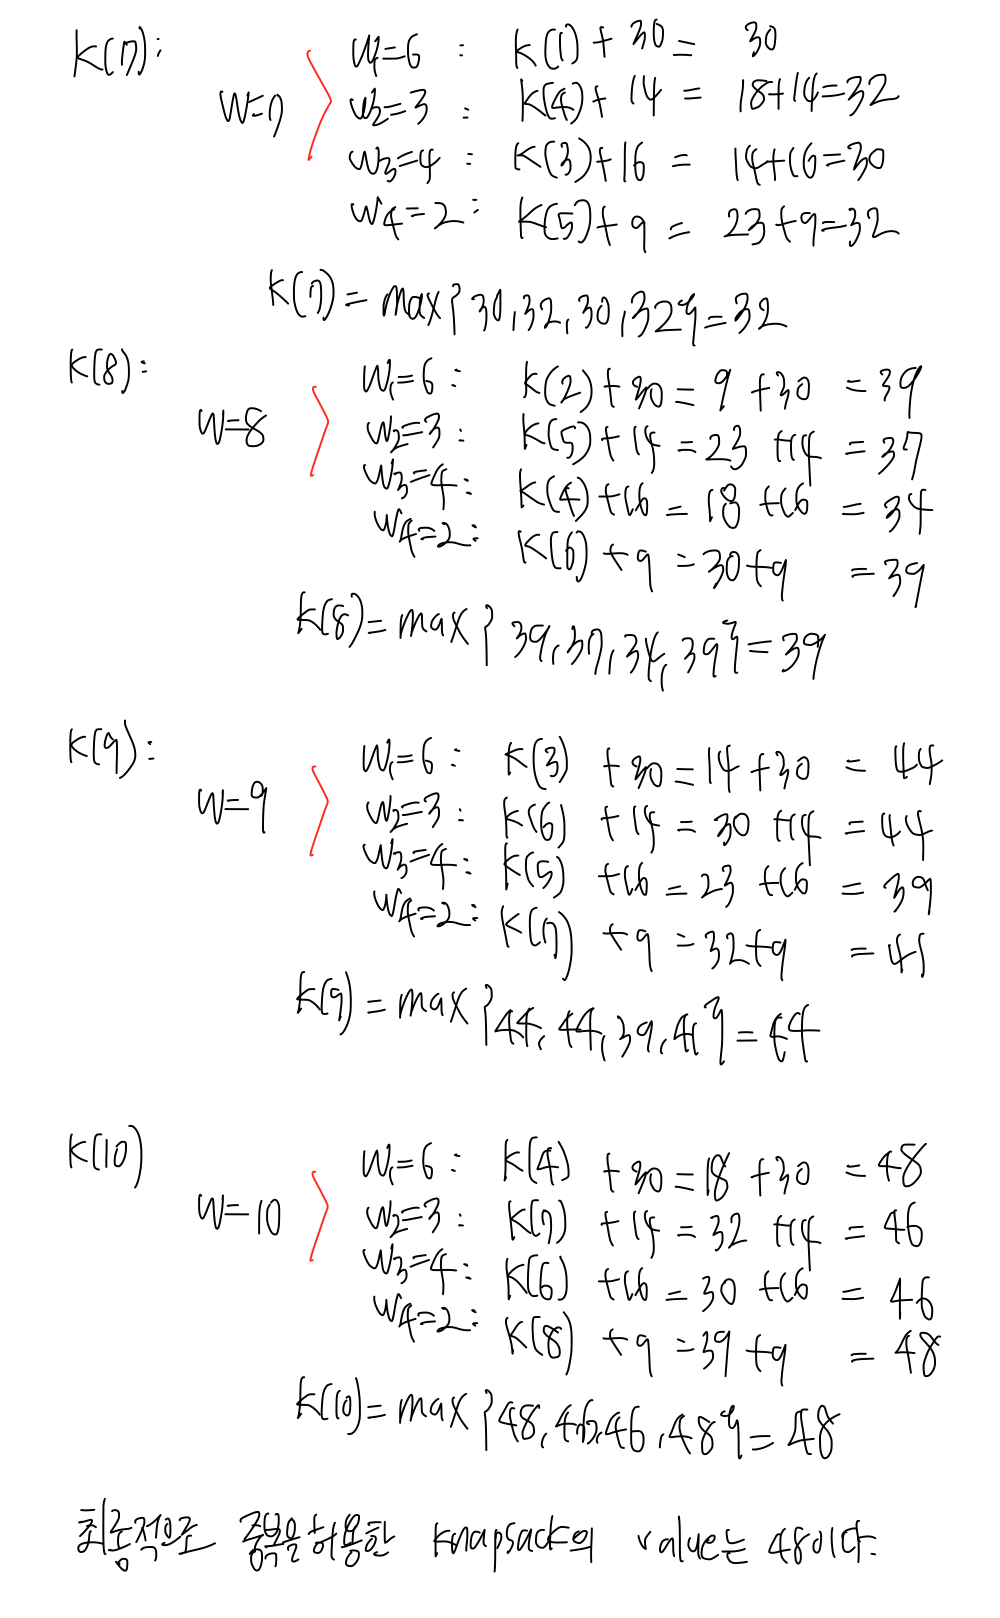 K(7): w1=6 : K(1)+30= 30
w=7 w2=3 : K(4)+14 = 18+14=32
w3=4 : K(3)+16 = 14+16=30
w4=2: K(5)+9 = 23+9=32
K(7)=max{30,32,30,32}=32
K(8): w1=6: K(2)+30=9+30 =39
w=8 w2=3: K(5)+14=23+14 =37
w3=4: K(4)+16=18+16 =34
w4=2: K(6)+9=30+9 =39
K(8)=max{39,37,34,39}=39
K(9): w1=6: K(3)+30=14+30 = 44
w=9 w2=3: K(6)+14=30+14 =44
w3=4: K(5)+16=23+16 =39
w4=2: K(7)+9=32+9 =41
K(9)=max{44,44,39,41}=44
K(10) w1=6: K(4)+30=18+30 =48
w=10 w2=3: K(7)+14=32+14 =46
w3=4: K(6)+16=30+16 =46
w4=2: K(8)+9=39+9 =48
K(10)=max{48,46,46,48}=48
최종적으로 중복을 허용한 knapsack의 value는 48이다.